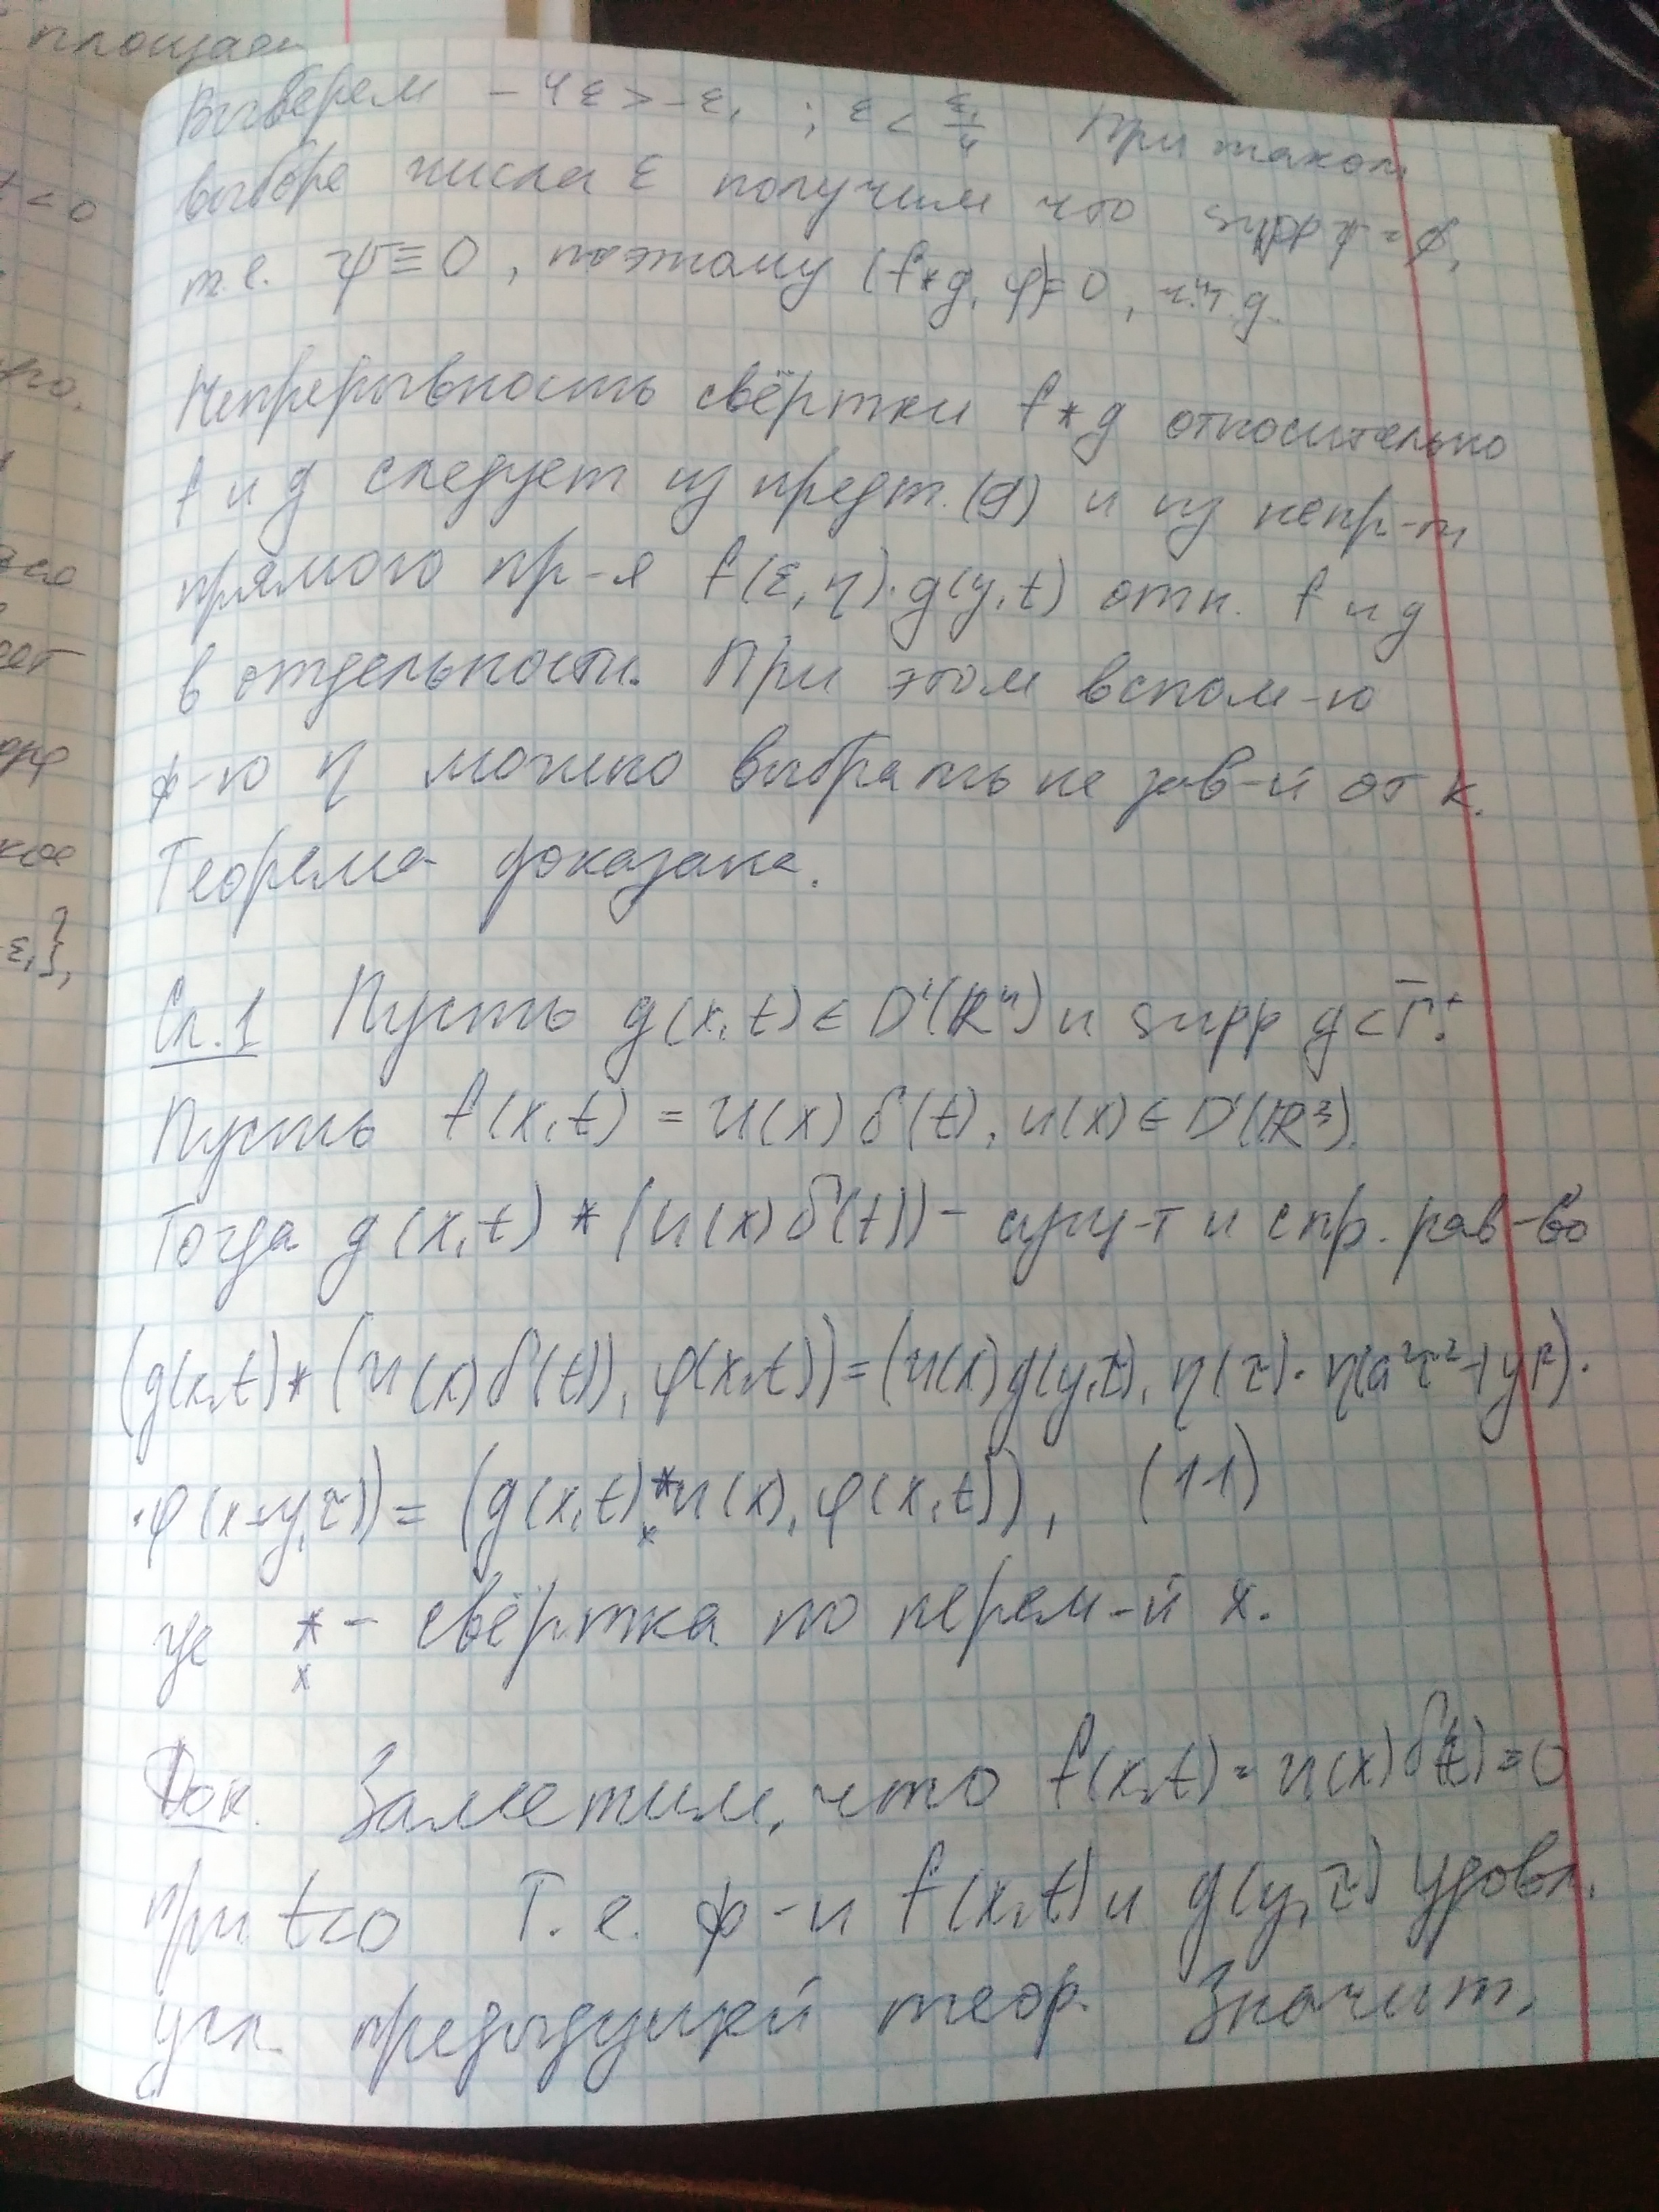 площад
t < 0
Выберем – 4ε > –ε₁ ; ε < ε₁/4 При таком
выборе числа ε получим что supp ψ = ∅,
т.е. ψ ≡ 0, поэтому (f * g, φ) = 0, ч.т.д.
Непрерывность свёртки f * g относительно
f и g следует из предст. (9) и из непр-ти
прямого пр-я f(ε, η)·g(y, t) отн. f и g
в отдельности. При этом вспом-ю
ф-ю η можно выбрать не зав-й от к.
Теорема доказана.
Сл.1 Пусть g(x,t) ∈ D'(ℝ⁴) и supp g ⊂ Γ̄⁺.
Пусть f(x,t) = u(x) δ(t), u(x) ∈ D'(ℝ³).
Тогда g(x,t) * (u(x) δ(t)) – сущ-т и спр. рав-во
(g(x,t) * (u(x) δ(t)), φ(x,t)) = (u(x) g(y,τ), η(τ)·η(a²τ²–|y|²)·
·φ(x+y,τ)) = (g(x,t) *ₓ u(x), φ(x,t)), (11)
где *ₓ – свёртка по перем-й x.
Док. Заметим, что f(x,t) = u(x) δ(t) = 0
при t<0 Т.е. ф-и f(x,t) и g(y,τ) удовл.
усл. предыдущей теор. Значит,